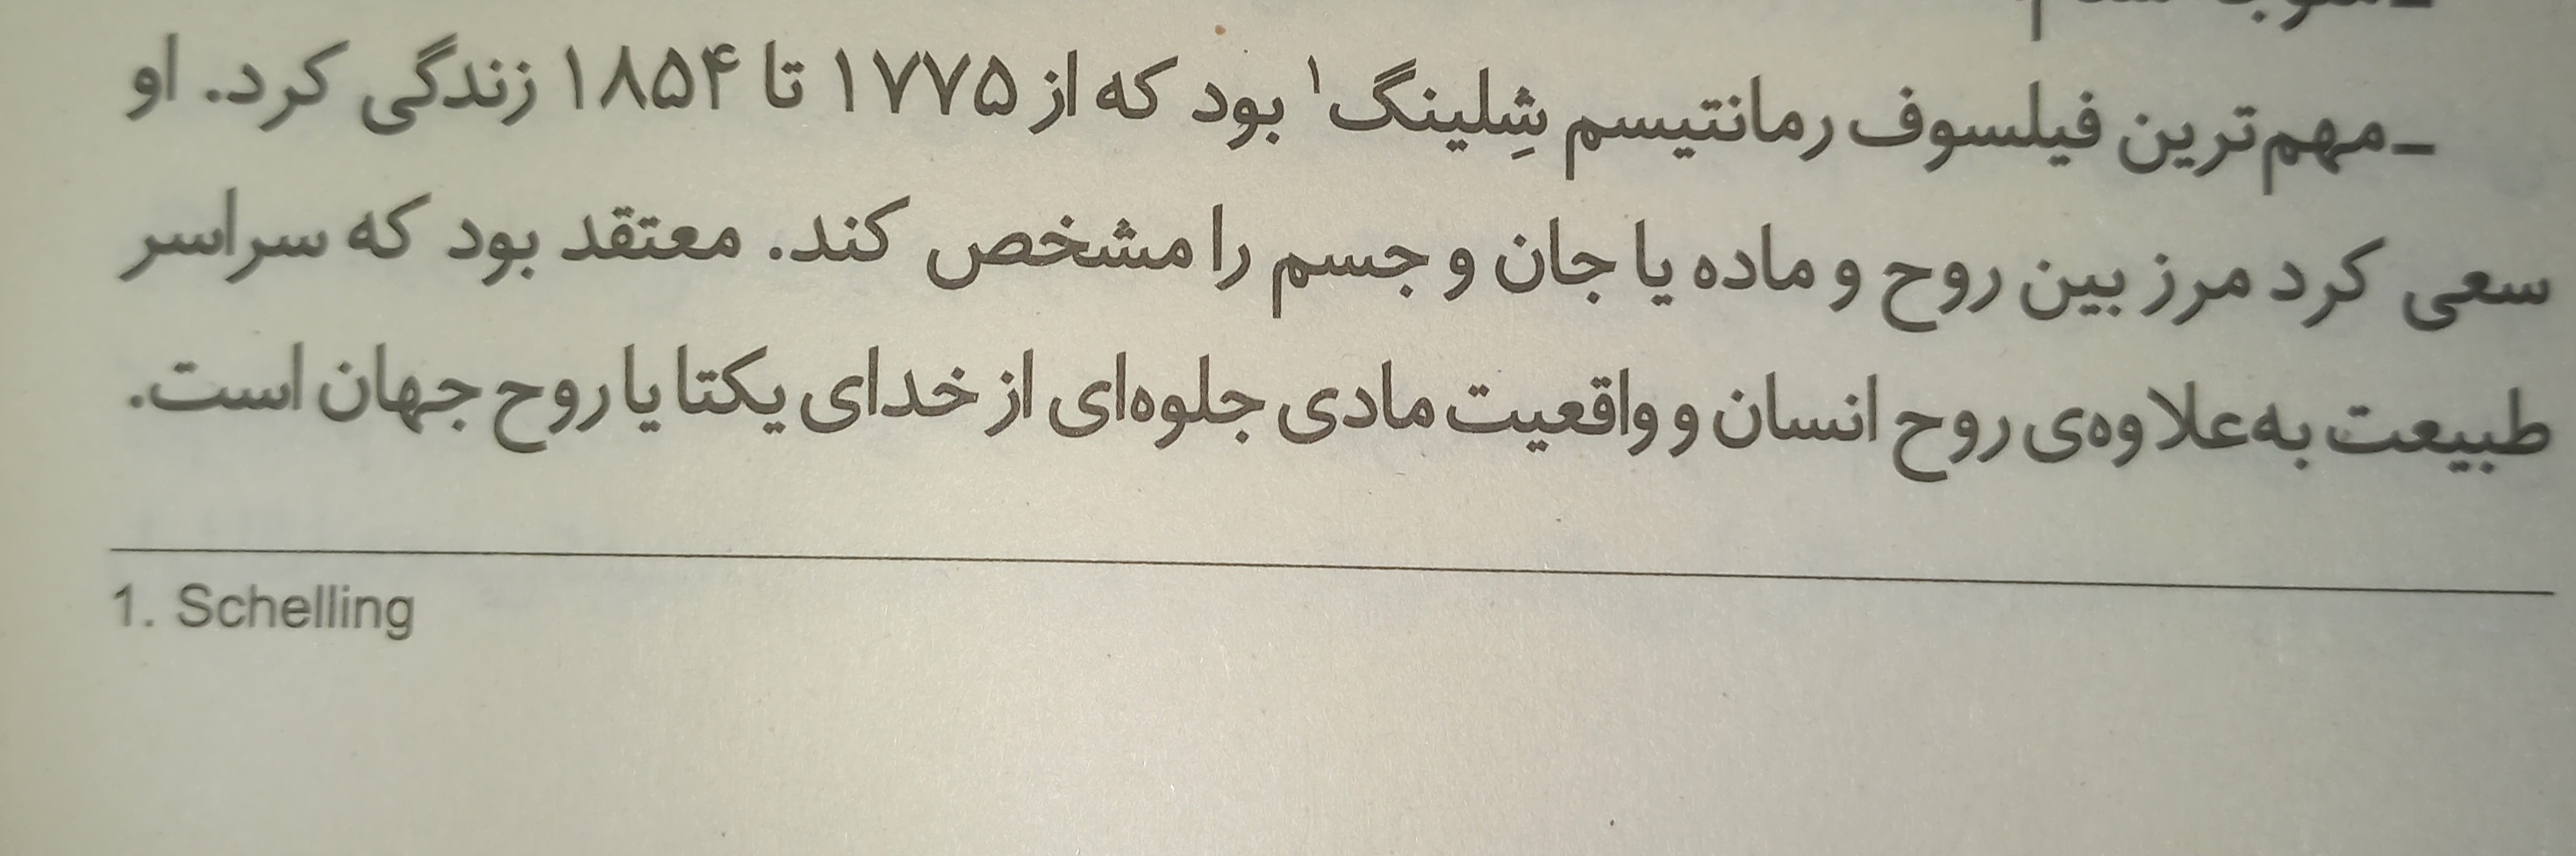 ـ مهم‌ترین فیلسوف رمانتیسم شِلینگ۱ بود که از ۱۷۷۵ تا ۱۸۵۴ زندگی کرد. او
سعی کرد مرز بین روح و ماده یا جان و جسم را مشخص کند. معتقد بود که سراسر
طبیعت به‌علاوه‌ی روح انسان و واقعیت مادی جلوه‌ای از خدای یکتا یا روح جهان است.
1. Schelling